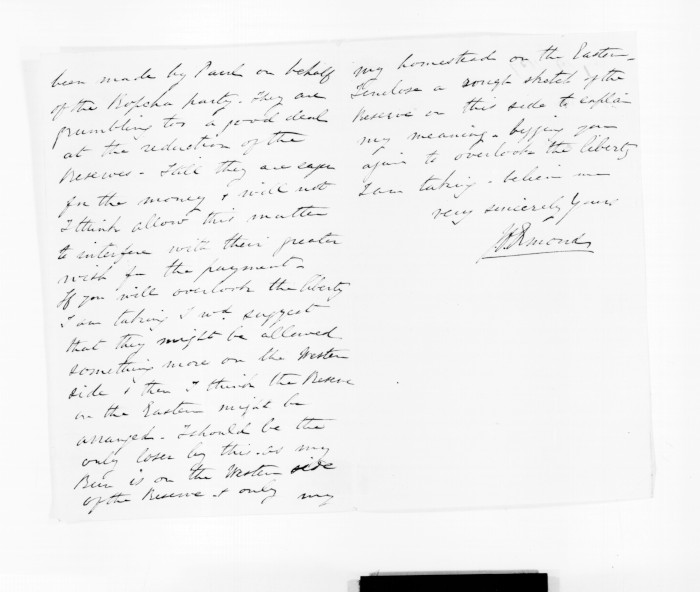 been made by Paul on behalf
of the party. They are
grumbling too a good deal
at the reduction of the
Reserves. Still they are eager
for the money & will not
I think allow this matter
to interfere with their greater
wish for the payment.
If you will overlook the liberty
I am taking I wd suggest
that they might be allowed
something more on the Western
side & then I think the Reserve
on the Eastern might be
arranged. I should be the
only loser by this. as my
Run is on the Western side
of the Reserve & only my
my homestead on the Eastern.
I enclose a rough sketch of the
Reserve on this side to explain
my meaning. begging you
again to overlook the liberty
I am taking. believe me
very sincerely Yours
Ormond